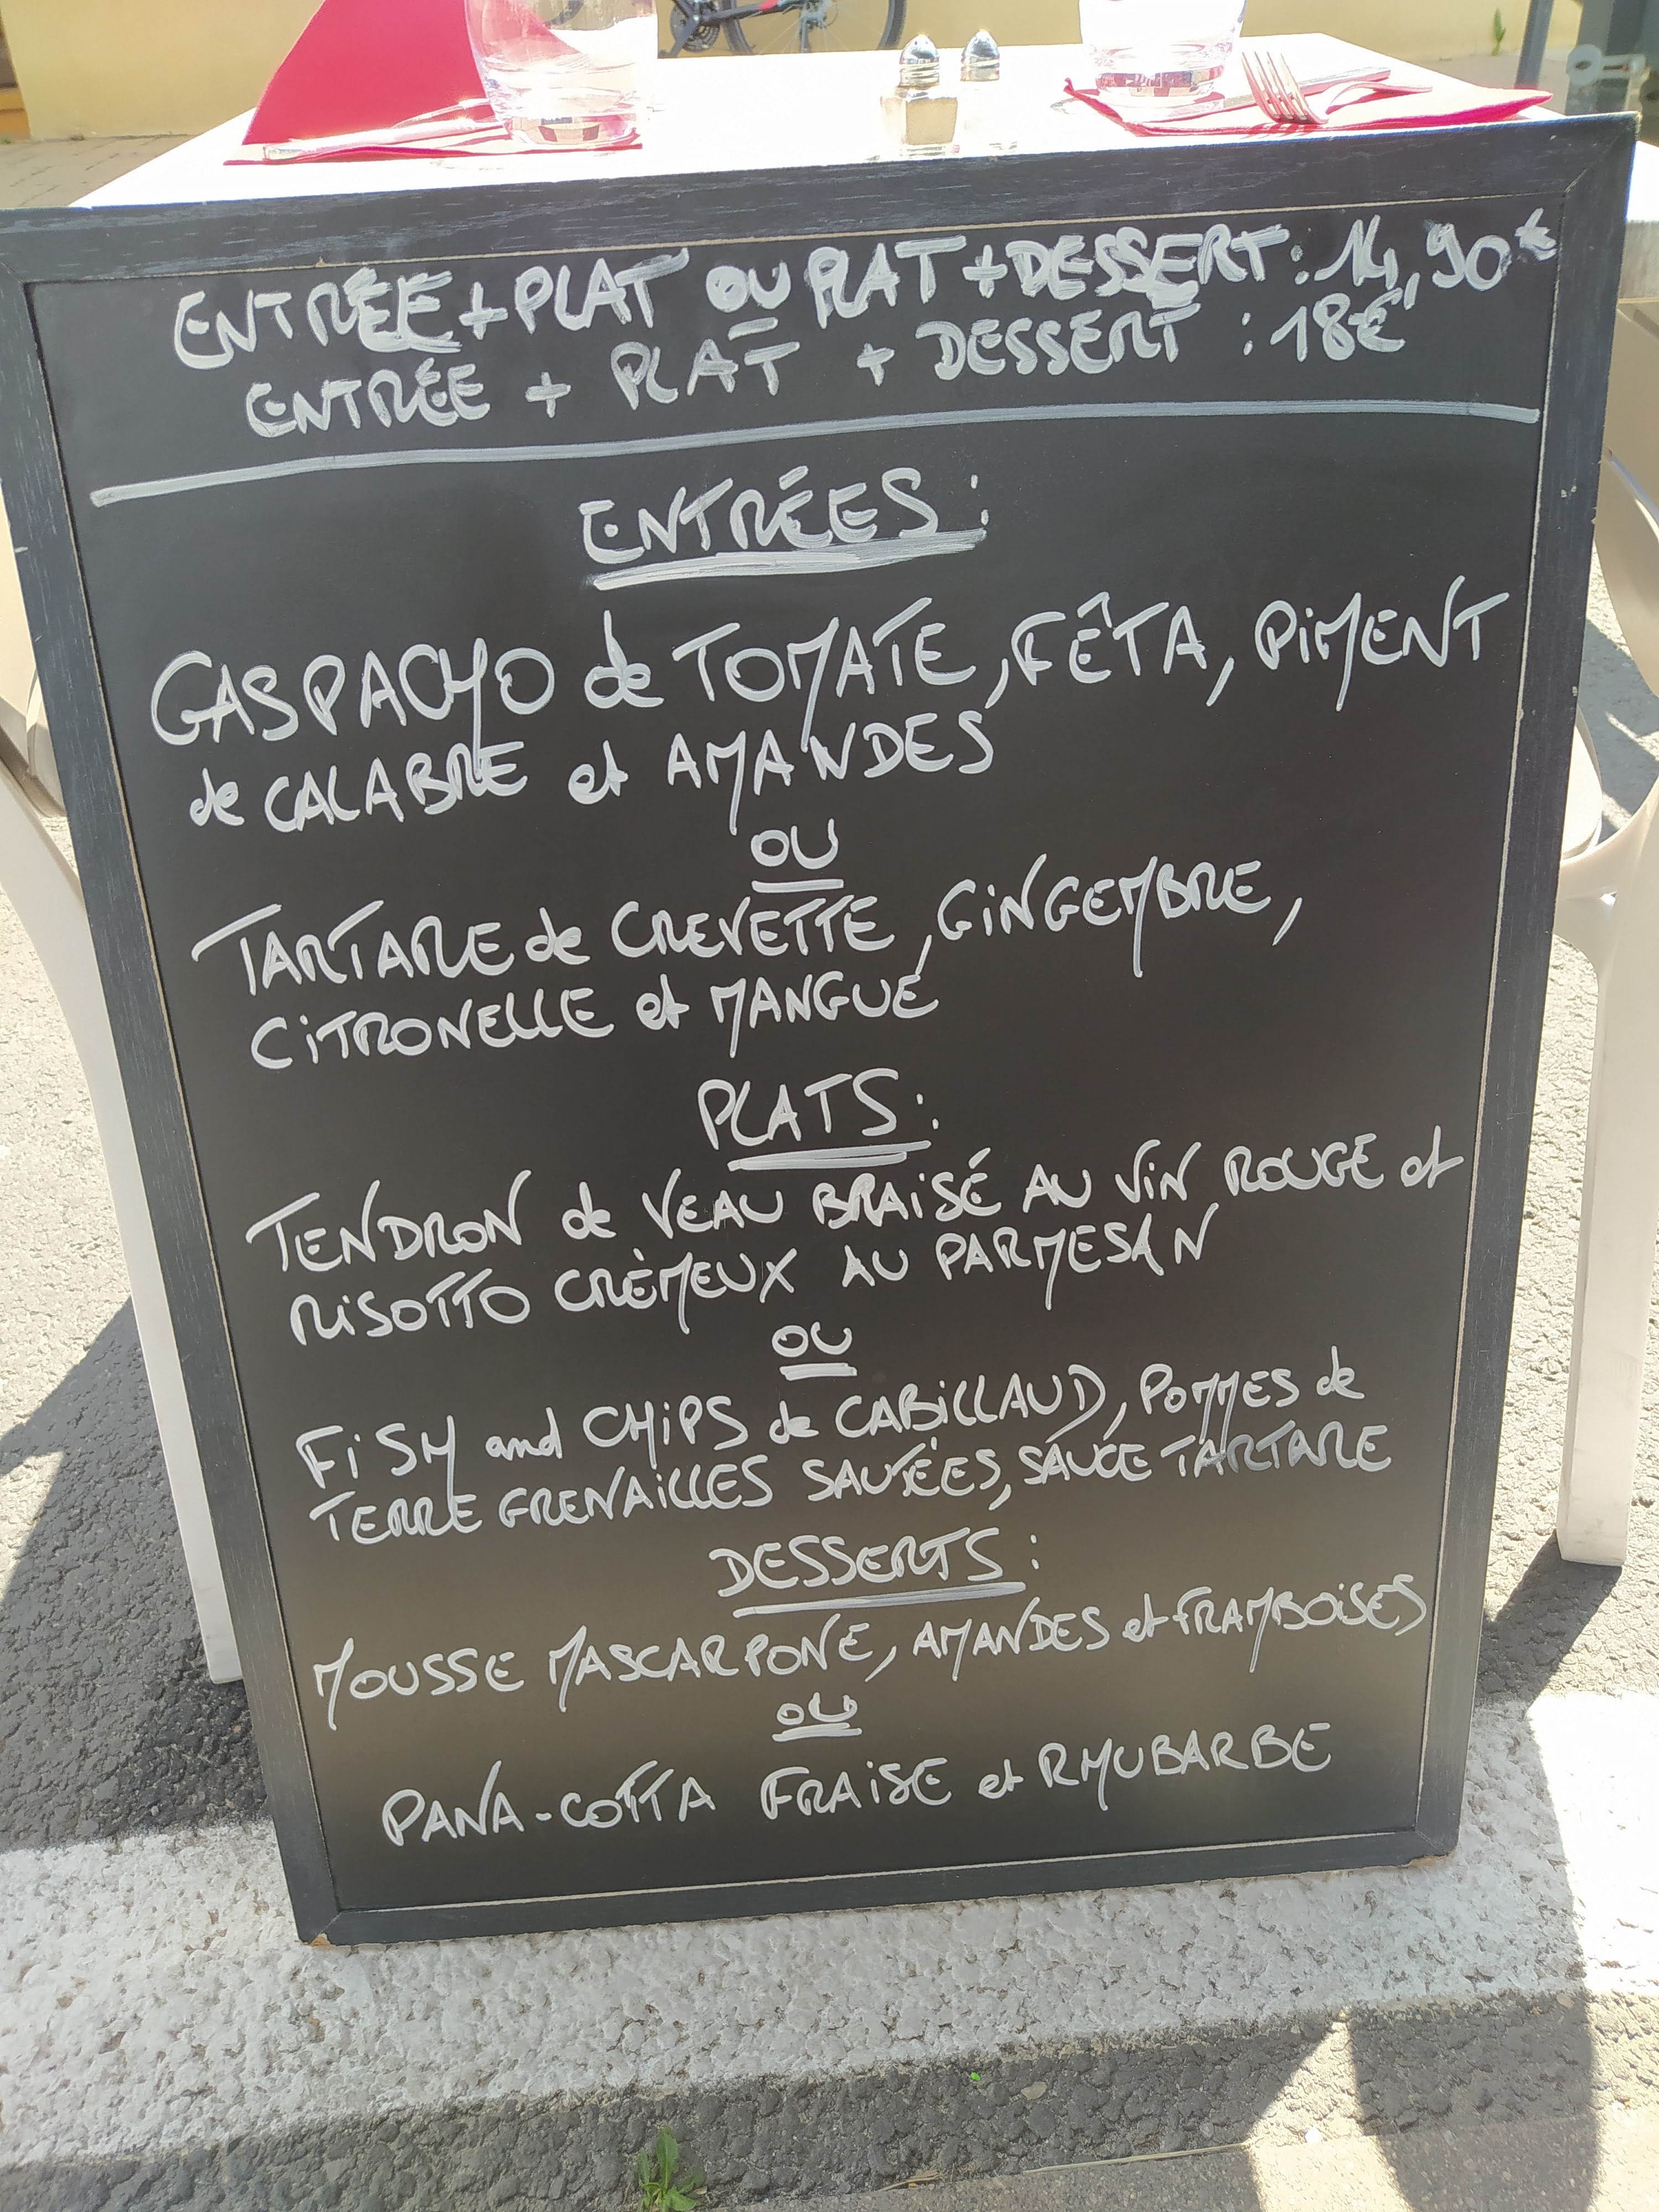 ENTRÉE + PLAT OU PLAT + DESSERT : 14,90€
ENTRÉE + PLAT + DESSERT : 18€
ENTRÉES :
GASPACHO de TOMATE, FÊTA, PIMENT
de CALABRE et AMANDES
OU
TARTARE de CREVETTE, GiNGEMBRE,
CiTRONELLE et MANGUE
PLATS :
TENDRON de VEAU BRAiSÉ AU ViN ROUGE et
RiSOTTO CRÈMEUX AU PARMESAN
OU
FiSH and CHiPS de CABiLLAUD, POMMES de
TERRE GRENAiLLES SAUTÉES, SAUCE TARTARE
DESSERTS :
MOUSSE MASCARPONE, AMANDES et FRAMBOiSES
OU
PANA-COTTA FRAiSE et RHUBARBE